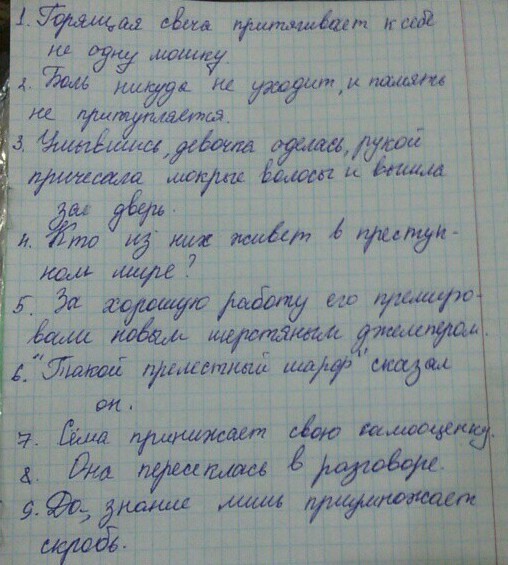 1. Горящая свеча притягивает к себе
не одну мошку.
2. Боль никуда не уходит, и память
не притупляется.
3. Умывшись, девочка оделась, рукой
причесала мокрые волосы и вышла
за дверь.
4. Кто из них живет в преступ-
ном мире?
5. За хорошую работу его премиро-
вали новым шерстяным джемпером.
6. "Такой прелестный шарф" сказал
он.
7. Сёма принижает свою самооценку.
8. Она пересеклась в разговоре.
9. До-, знание лишь приумножает
скробь.